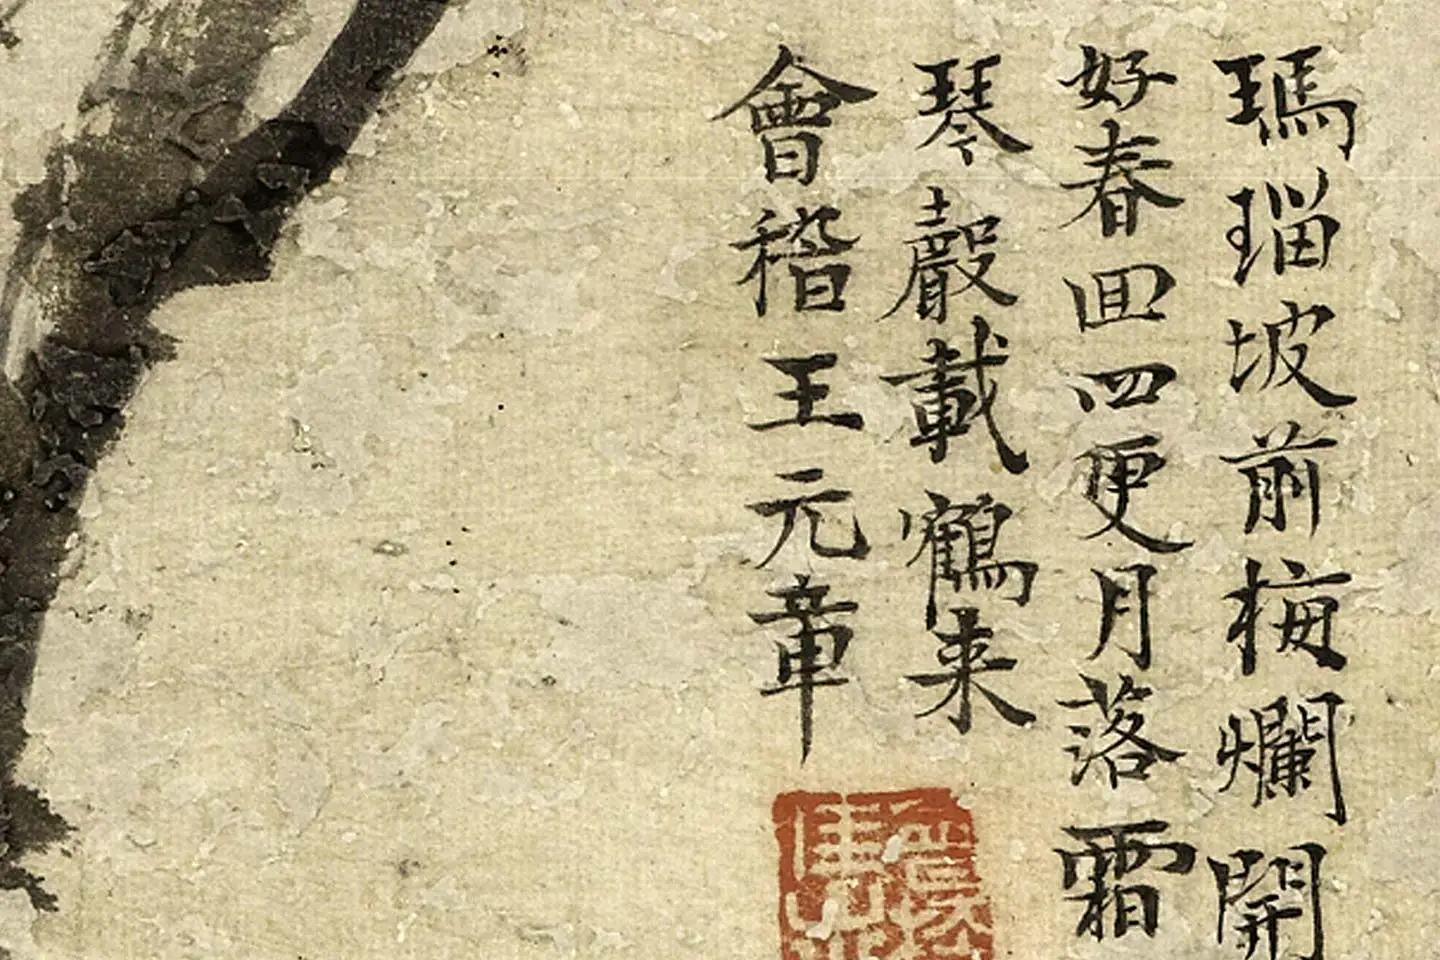 瑪瑙坡前梅爛開
好春囬四更月落霜
琴聲載鶴来
會稽王元章